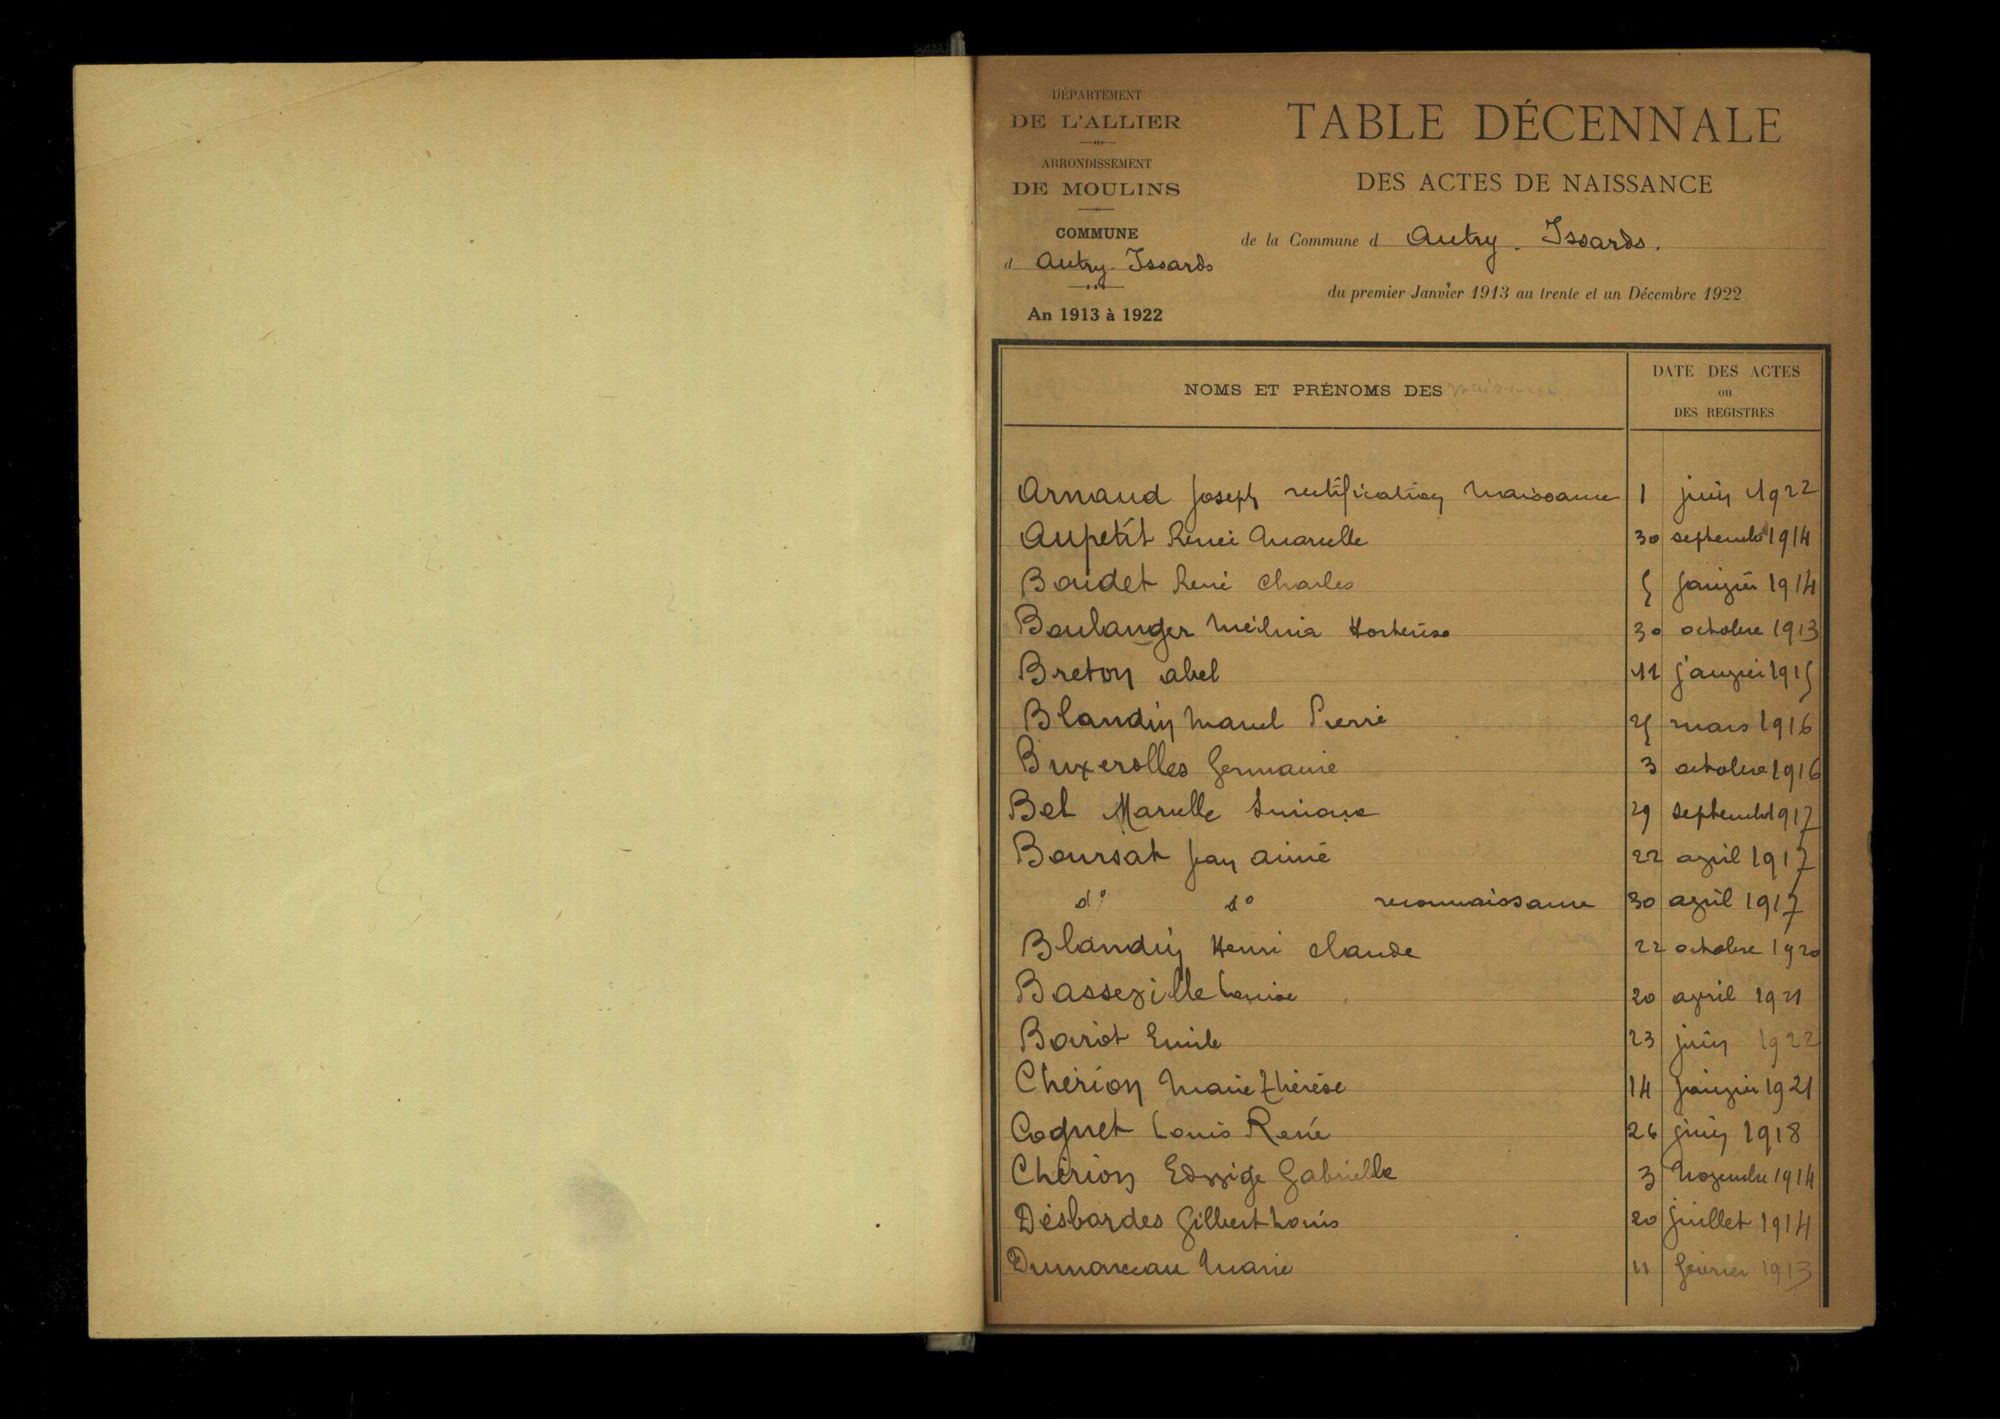 DÉPARTEMENT
DE L'ALLIER
ARRONDISSEMENT
DE MOULINS
COMMUNE
d Autry-Issards
An 1913 à 1922
TABLE DÉCENNALE
DES ACTES DE NAISSANCE
de la Commune d Autry-Issards.
du premier Janvier 1913 au trente et un Décembre 1922
NOMS ET PRÉNOMS DES
DATE DES ACTES
ou
DES REGISTRES
Arnaud Joseph rectification Naissance 1 juin 1922
Aupetit Renée Marcelle 30 septembre 1914
Boudet René Charles 5 janvier 1914
Boulanger Hortense 30 octobre 1913
Breton abel 11 janvier 1915
Blandin Marcel Pierre 25 mars 1916
Buxerolles Germaine 3 octobre 1916
Bel Marcelle Simone 29 septembre 1917
Boursat Jean aimé 22 avril 1917
d° d° reconnaissance 30 avril 1917
Blandin Henri Claude 22 octobre 1920
Basseville Louise 20 avril 1921
Bariot Emile 23 juin 1922
Chérion Marie Thérèse 14 janvier 1921
Cognet Louis René 26 juin 1918
Chérion Edwige Gabrielle 3 Novembre 1914
Désbordes Gilbert Louis 20 juillet 1914
Dumonceau Marie 11 février 1913